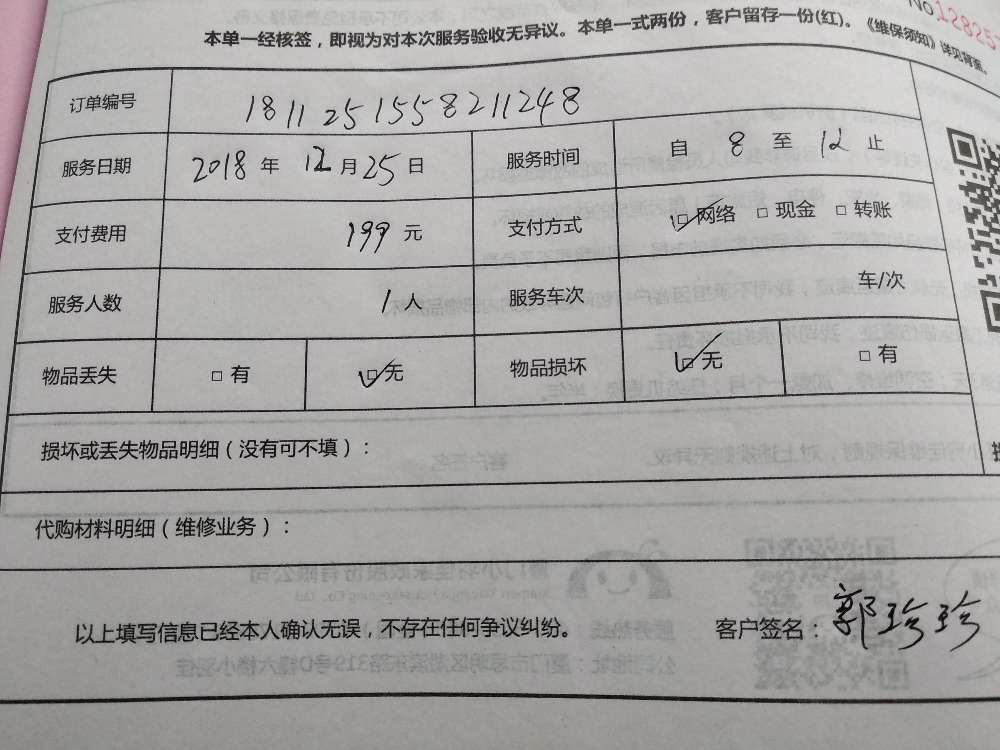 本单一经核签，即视为对本次服务验收无异议。本单一式两份，客户留存一份(红)。《维保须知》详见背面。
订单编号 1811251558211248
服务日期 2018年 12月25日 服务时间 自 8 至 12 止
支付费用 199元 支付方式 ☑网络 □现金 □转账
服务人数 1人 服务车次 车/次
物品丢失 □有 ☑无 物品损坏 ☑无 □有
损坏或丢失物品明细（没有可不填）：
代购材料明细（维修业务）：
以上填写信息已经本人确认无误，不存在任何争议纠纷。 客户签名：郭珍珍